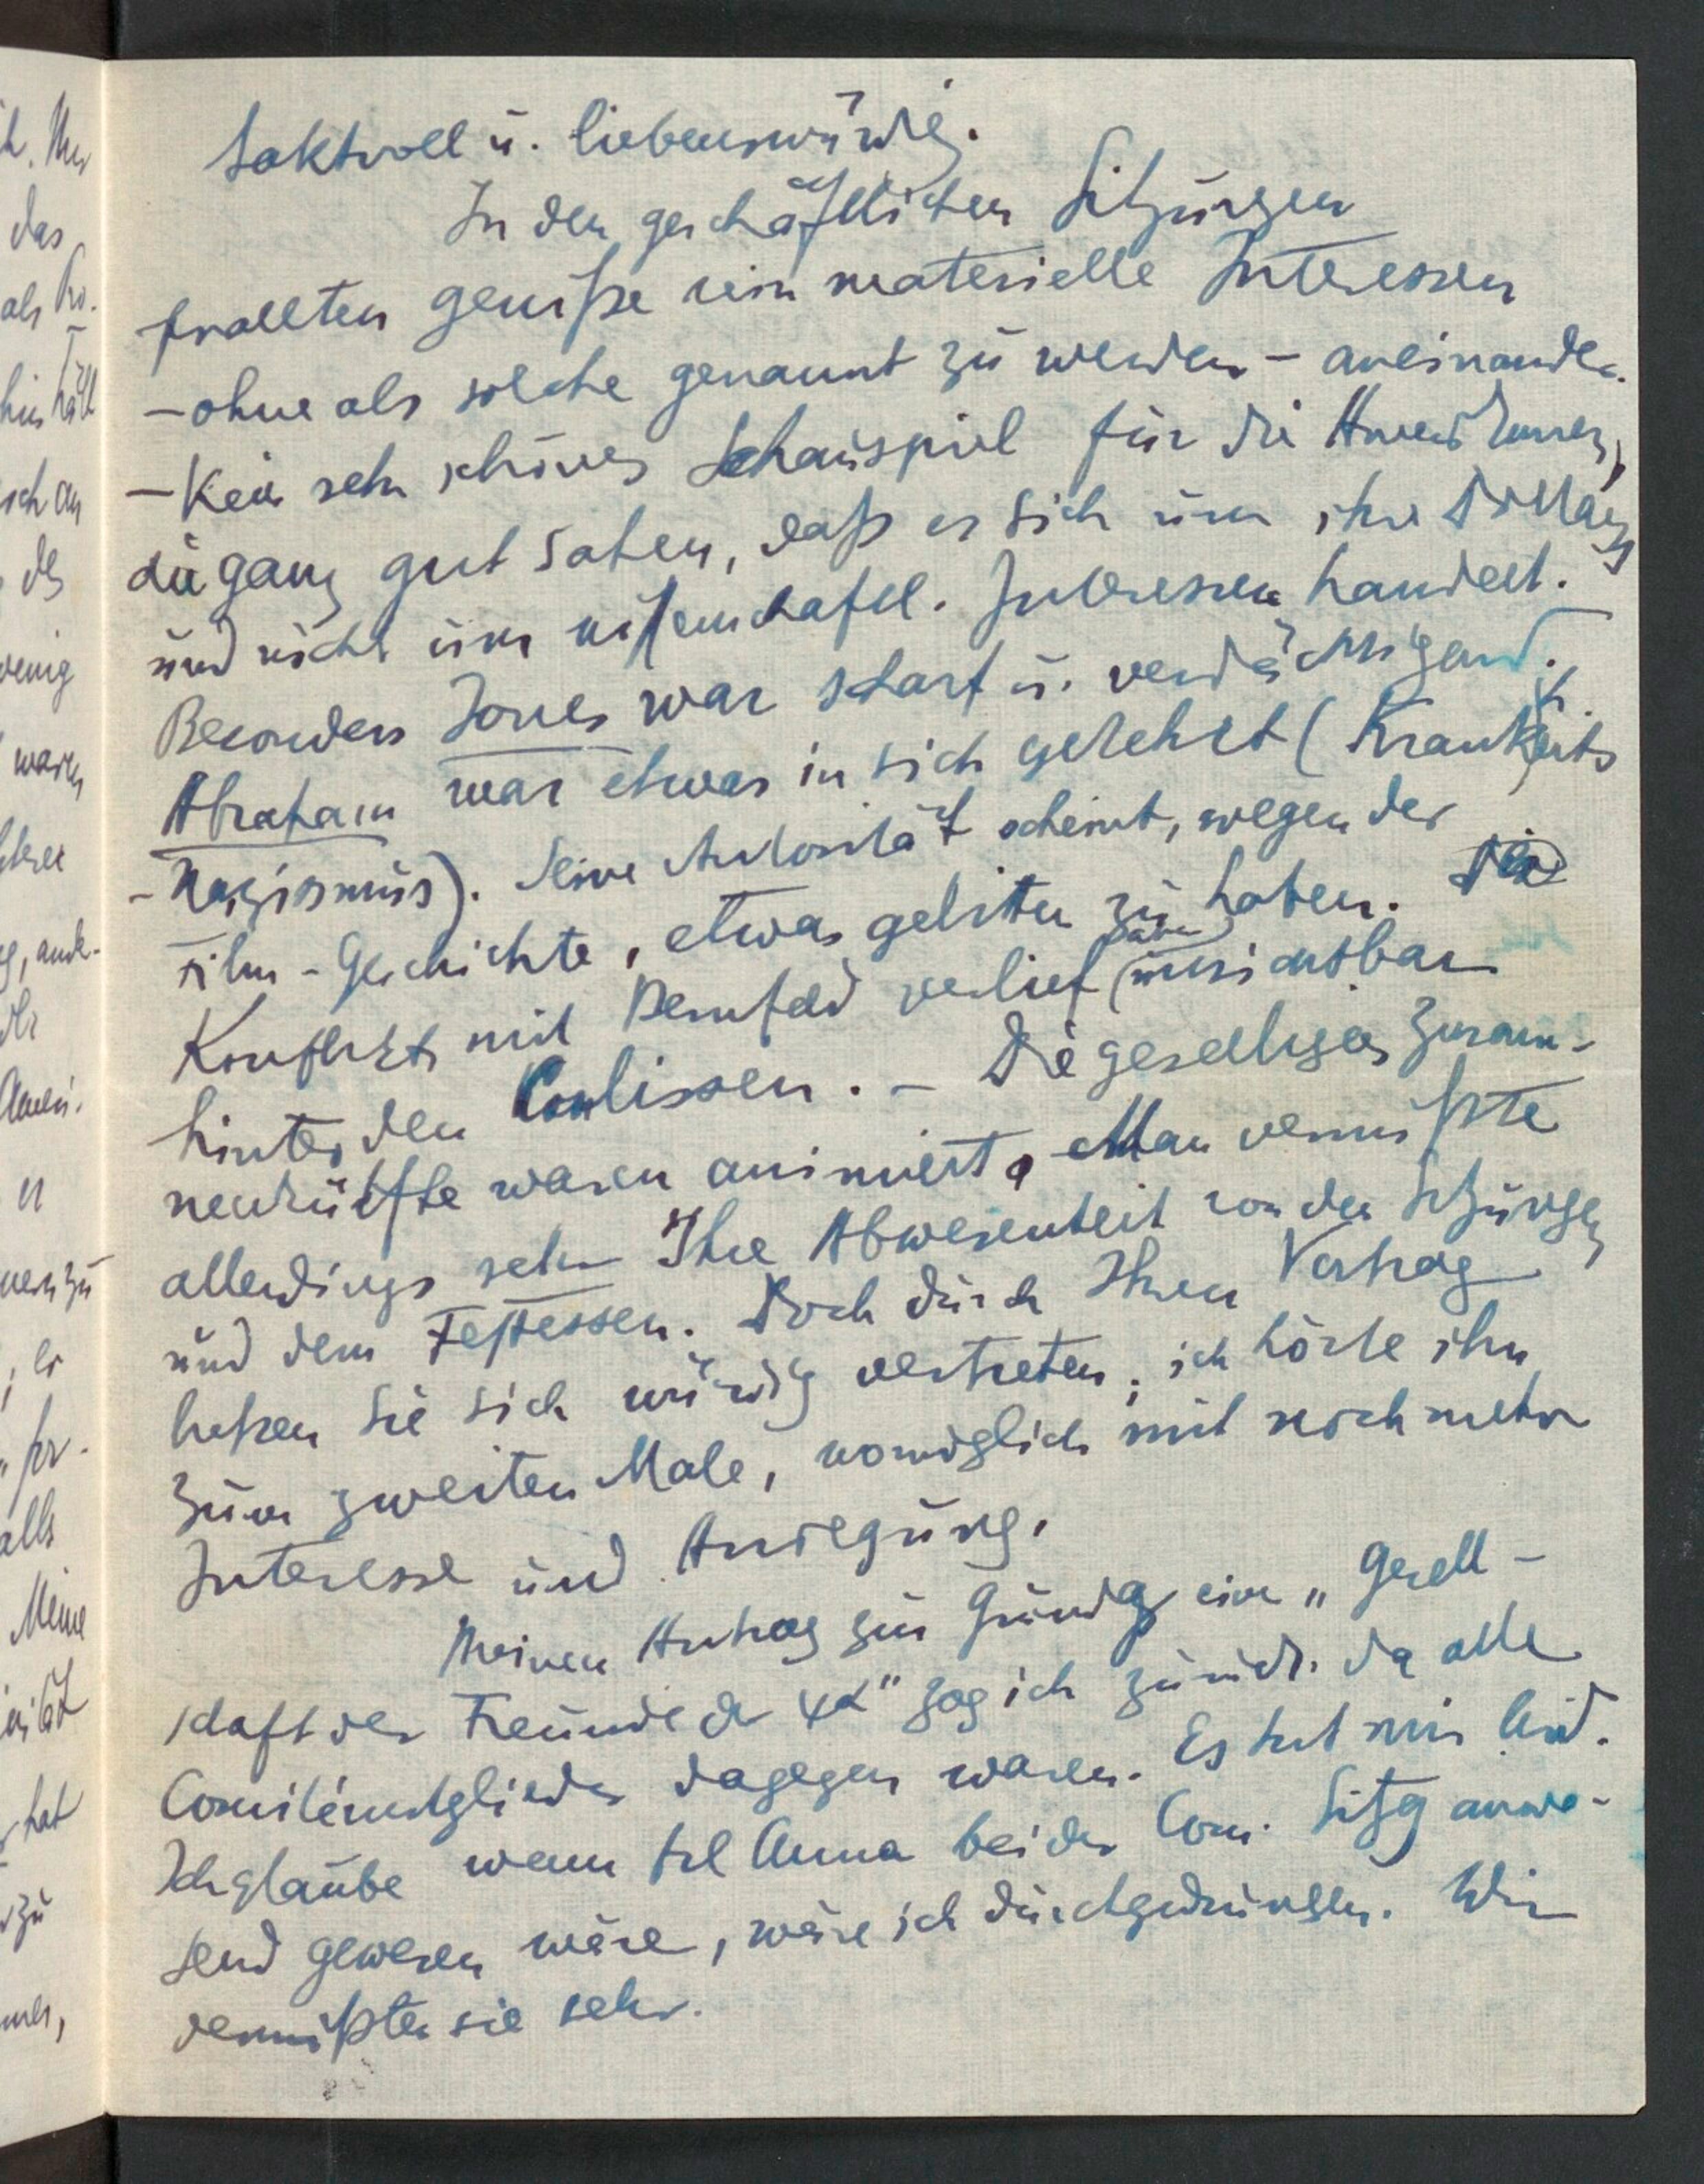 taktvoll u. liebenswürdig.
In den geschäftlichen Sitzungen
prallten gewiße rein materielle Interessen
– ohne als solche genannt zu werden – aneinander.
– Kein sehr schönes Schauspiel für die Amerikaner,
die ganz gut sahen, daß es sich um ihre Dollars
und nicht um wissenschaftl. Interessen handelt.
Besonders Jones war scharf u. verdächtigend.
Abraham war etwas in sich gekehrt (Krankheits
- Narzismus). Seine Autorität scheint, wegen der
Film-Geschichte, etwas gelitten zu haben. Der
Konflikt mit Bernfeld verlief aber unsichtbar
hinter den Coulissen. – Die geselligen Zusam-
menkünfte waren animiert, Man vermißte
allerdings sehr Ihre Abwesenheit von den Sitzungen
und dem Festessen. Doch durch Ihren Vortrag
ließen Sie sich würdig vertreten; ich hörte ihn
zum zweiten Male, womöglich mit noch mehr
Interesse und Anregung.
Meinen Antrag zur Gründg einer „Gesell-
schaft der Freunde der ψα" zog ich zurück. da alle
Comitémitglieder dagegen waren. Es tut mir leid.
Ich glaube wenn Frl Anna bei der Com. Sitzg anwe-
send gewesen wäre, wäre ich durchgedrungen. Wir
vermißten sie sehr.